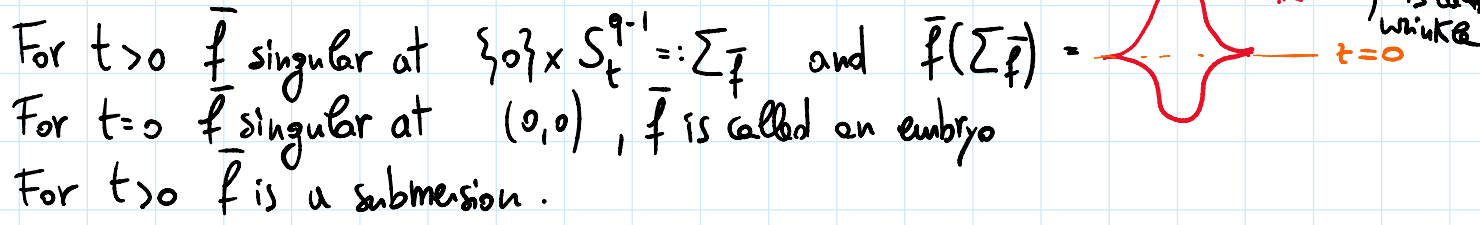 For t>0 f̄ singular at {0}×S_t^{q-1} =: Σ_f̄ and f̄(Σ_f̄) =
wrinkle
t=0
For t=0 f̄ singular at (0,0), f̄ is called an embryo
For t>0 f̄ is a submersion.